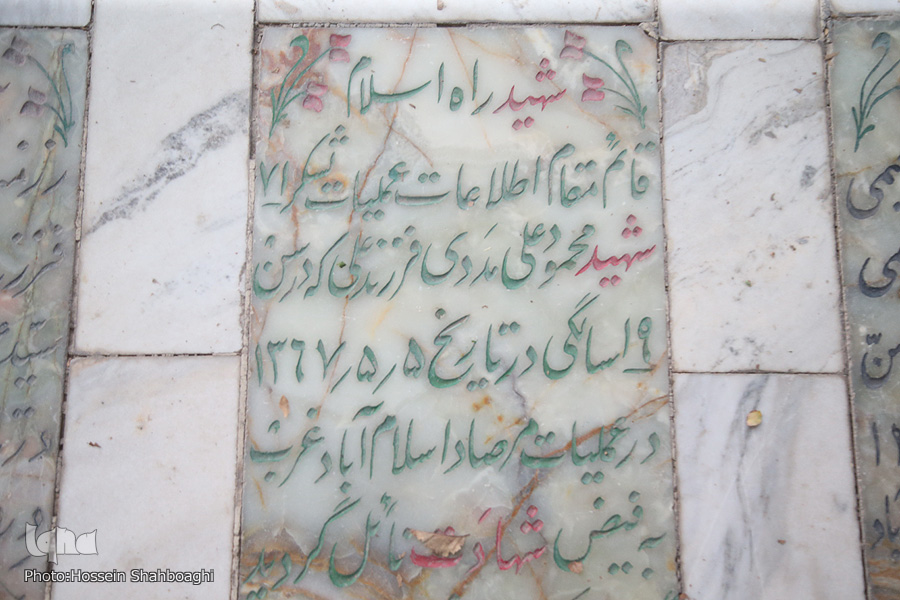 شهید راه اسلام
قائم مقام اطلاعات عملیات لشکر ۷۱
شهید محمود علی مددی فرزند علی که در سن
۱۹ سالگی در تاریخ ۵ر۵ر۱۳۶۷
در عملیات مرصاد اسلام آباد غرب
به فیض شهادت نائل گردید
iqna
Photo:Hossein Shahboaghi